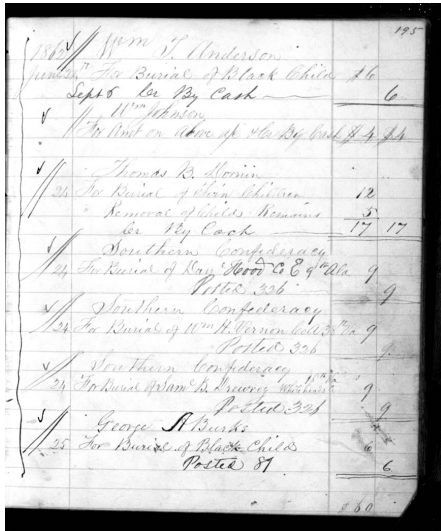 195
1863 Wm T. Anderson
June 24th For Burial of Black Child $6
Sept 8 Cr By Cash 6
Wm Johnson
For Amt on above a/c & Cr By Cash $4 $4
Thomas B.
24 For Burial of Children 12
Removal of Childs Remains 5
Cr By Cash 17 17
Southern Confederacy
24 For Burial of Dan Hood Co E 9th Ala 9
Posted 326 9
Southern Confederacy
24 For Burial of Wm H. Vernon 38th Va 9
Posted 326 9
Southern Confederacy
24 For Burial of Sam B. Drewry 9
Posted 326 9
George A Burks
25 For Burial of Black Child 6
Posted 87 6
$60